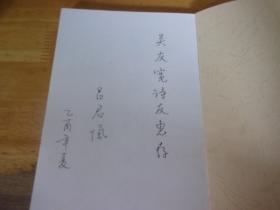 吴友宽诗友惠存
吕君忾
乙酉年夏